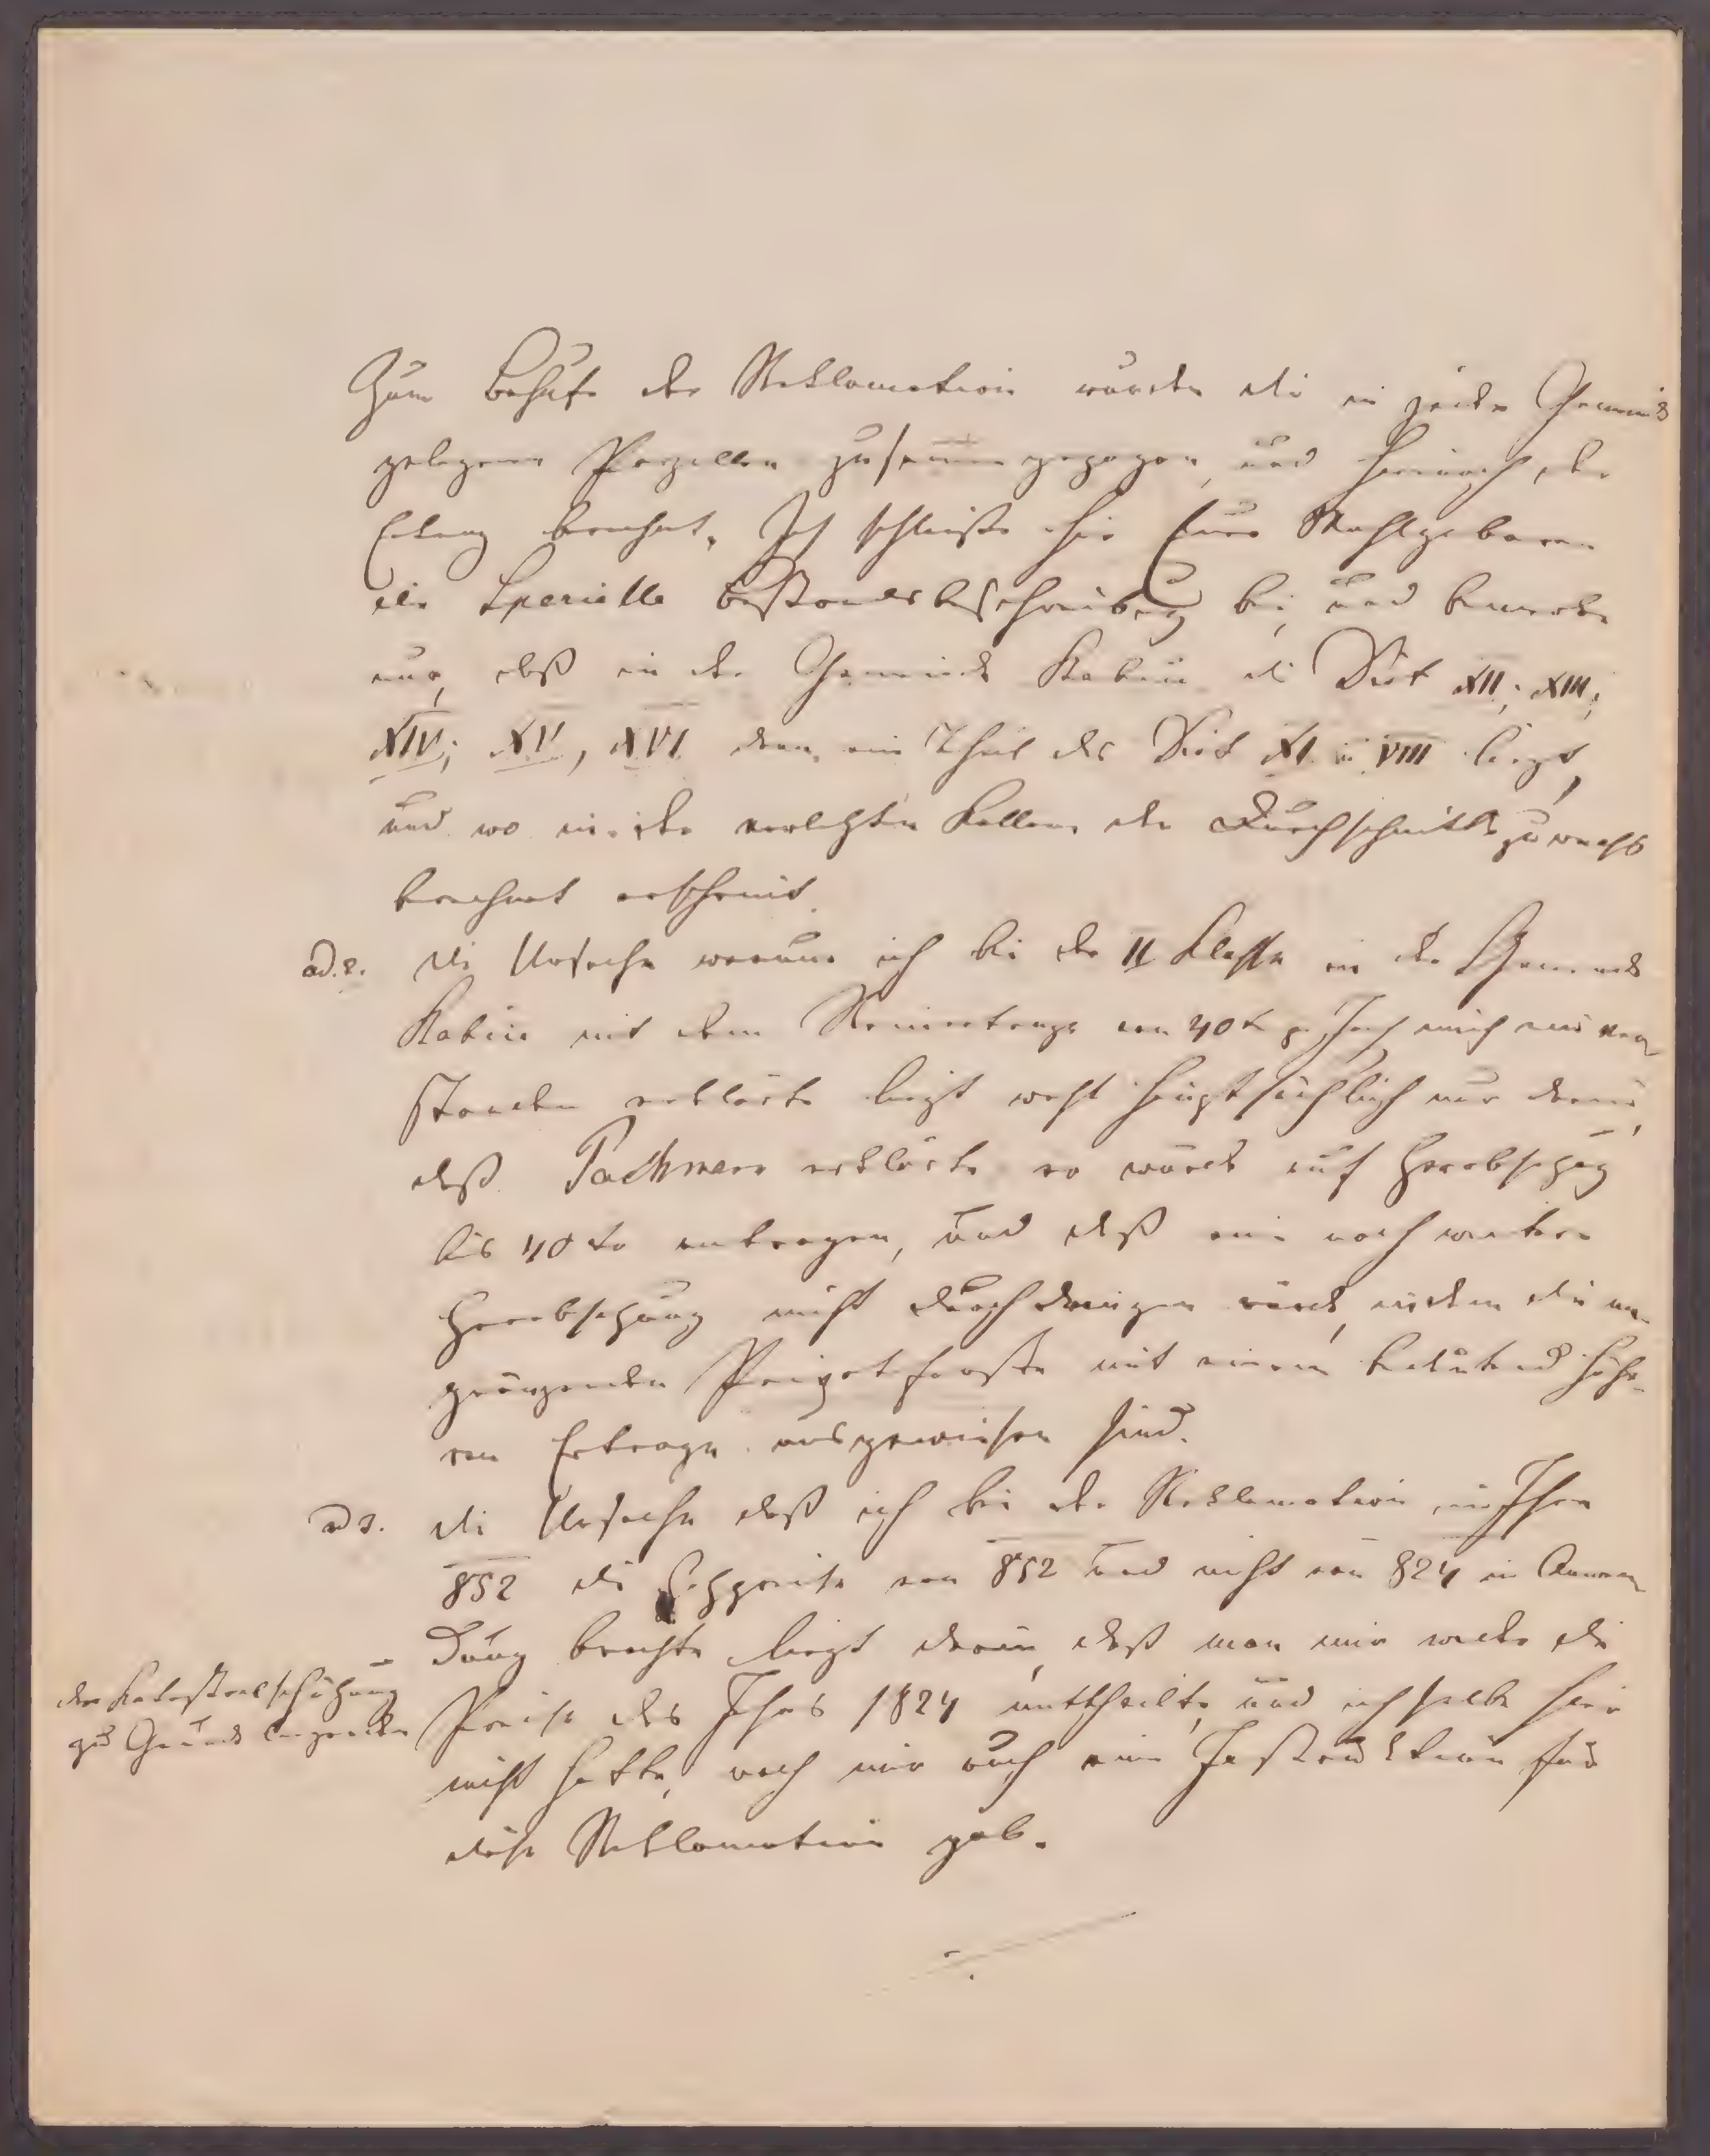 Zum Behufe der Reklamation wurden die in jeder Gemeinde
gelegenen Parzellen zusammengezogen, und hernach der
Ertrag berechnet. Ich schließe hier Euer Wohlgeboren
die Spezielle Bestandesbeschreibung bei, und bemerke
nur, daß in der Gemeinde Rabin die Distt XII; XIII;
XIV; XV, XVI dann ein Theil des Distt XI u VIII liegt,
und wo in der vorletzten Kollone der Durchschnittszuwachs
berechnet erscheint.
ad. 2. Die Ursache warum ich bei der II Klasse in der Gemeinde
Rabin mit dem Reinertrage von 40 x p Joch mich einver
standen erklärte liegt wohl hauptsächlich nur darin,
daß Pachmann erklärte er würde auf Herabsetzung
bis 40 xr antragen, und daß eine noch weitere
Herabsetzung nicht durchdringen würde, indem die an-
gränzenden Privatforste mit einem bedeutend höhe-
ren Ertrage ausgewiesen sind.
ad 3. Die Ursache daß ich bei der Reklamation im Jahre
852 die Holzpreise von 852 und nicht von 824 in Anwen
dung brachte liegt darin, daß man mir weder die
der Katastralschätzung
zu Grunde liegenden
Preise des Jahres 1824 mittheilte, und ich selbe hier
nicht hatte, noch mir auch eine Instruktion für
diese Reklamation gab.